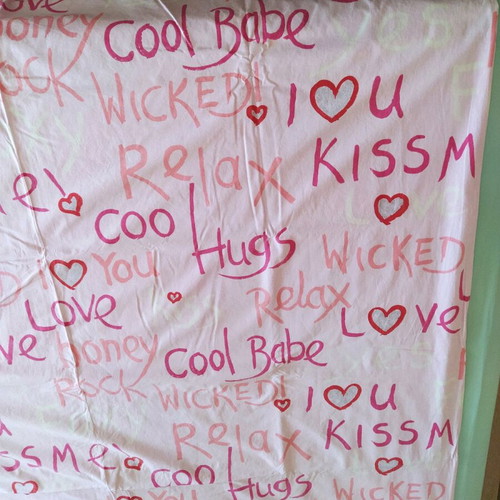 Love
Honey Cool Babe
Rock WICKED! I U
Relax KISS M
e!
Cool Hugs WICKED
I You
Love Relax Love
ve Honey Cool Babe
Rock WICKED! I U
Relax KISS M
ss Me!
Cool Hugs WICKED
You